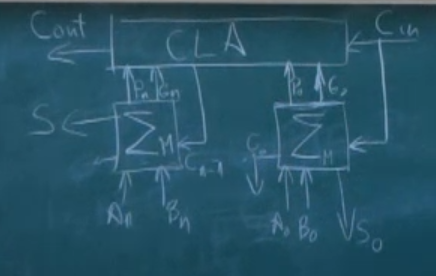 Cout CLA Cin
Pn Gn P₀ G₀
S ΣM C₀ ΣM
Cn-1
An Bn A₀ B₀ S₀